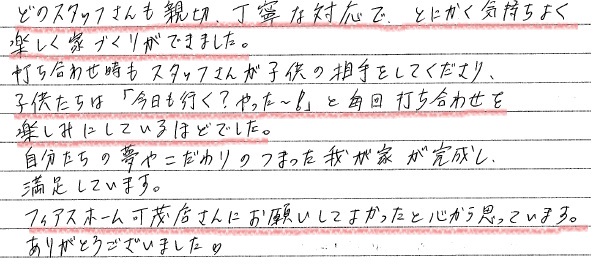 どのスタッフさんも親切、丁寧な対応で、とにかく気持ちよく
楽しく家づくりができました。
打ち合わせ時もスタッフさんが子供の相手をしてくださり、
子供たちは「今日も行く？やった～！」と毎回打ち合わせを
楽しみにしているほどでした。
自分たちの夢やこだわりのつまった我が家が完成し、
満足しています。
フィアスホーム可茂店さんにお願いしてよかったと心から思っています。
ありがとうございました♡